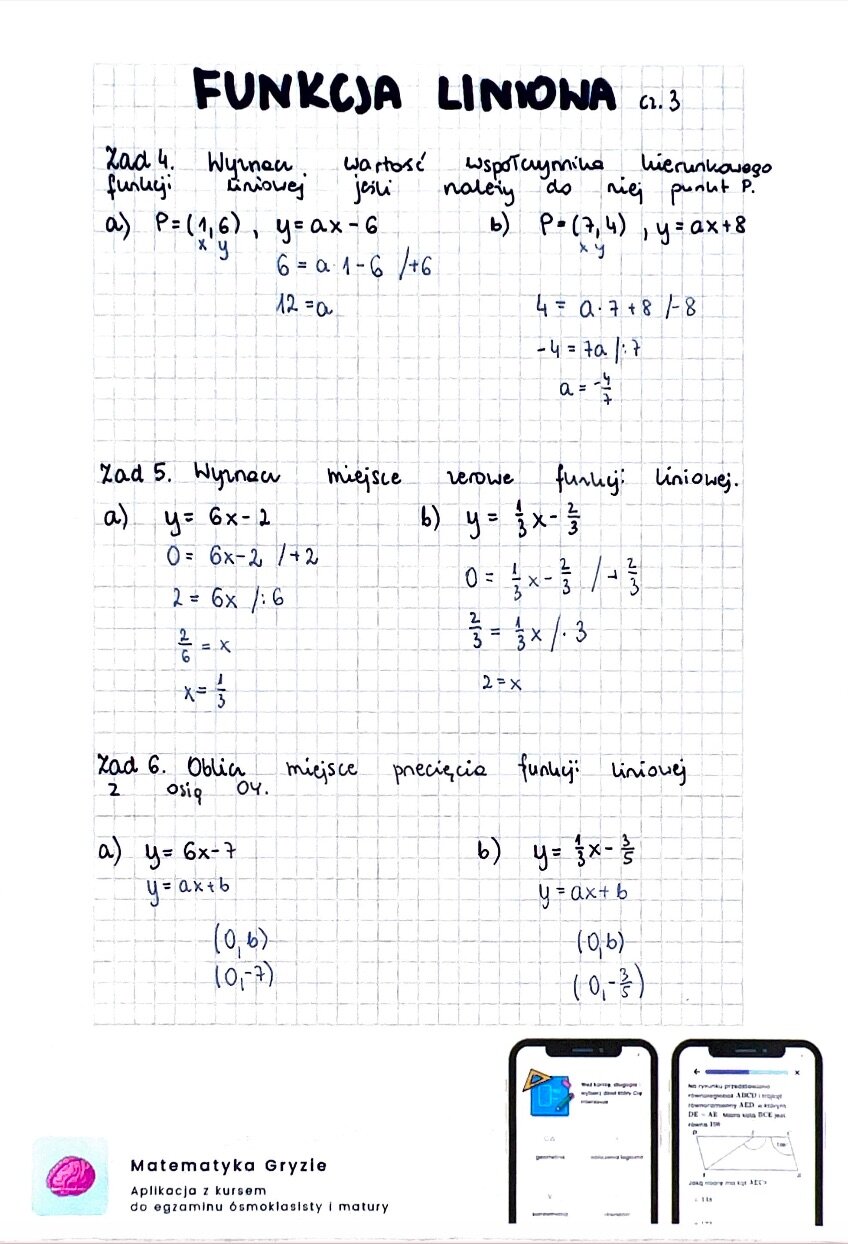 FUNKCJA LINIOWA cz. 3
Zad 4. Wyznacz wartość współczynnika kierunkowego
funkcji liniowej jeśli należy do niej punkt P.
a) P=(1,6), y=ax-6
x y
6 = a·1-6 /+6
12=a
b) P=(7,4), y=ax+8
x y
4 = a·7+8 /-8
-4=7a /:7
a = -4/7
Zad 5. Wyznacz miejsce zerowe funkcji liniowej.
a) y= 6x-2
0= 6x-2 /+2
2 = 6x /:6
2/6 = x
x= 1/3
b) y = 1/3x - 2/3
0 = 1/3x - 2/3 /+2/3
2/3 = 1/3x /·3
2=x
Zad 6. Oblicz miejsce przecięcia funkcji liniowej
z osią OY.
a) y= 6x-7
y=ax+b
(0,b)
(0,-7)
b) y= 1/3x - 3/5
y=ax+b
(0,b)
(0,-3/5)
Matematyka Gryzie
Aplikacja z kursem
do egzaminu ósmoklasisty i matury
geometria
Na rysunku przedstawiono
równoległobok ABCD i trójkąt
równoramienny AED w którym
DE = AE Miara kąta BCE jest
równa